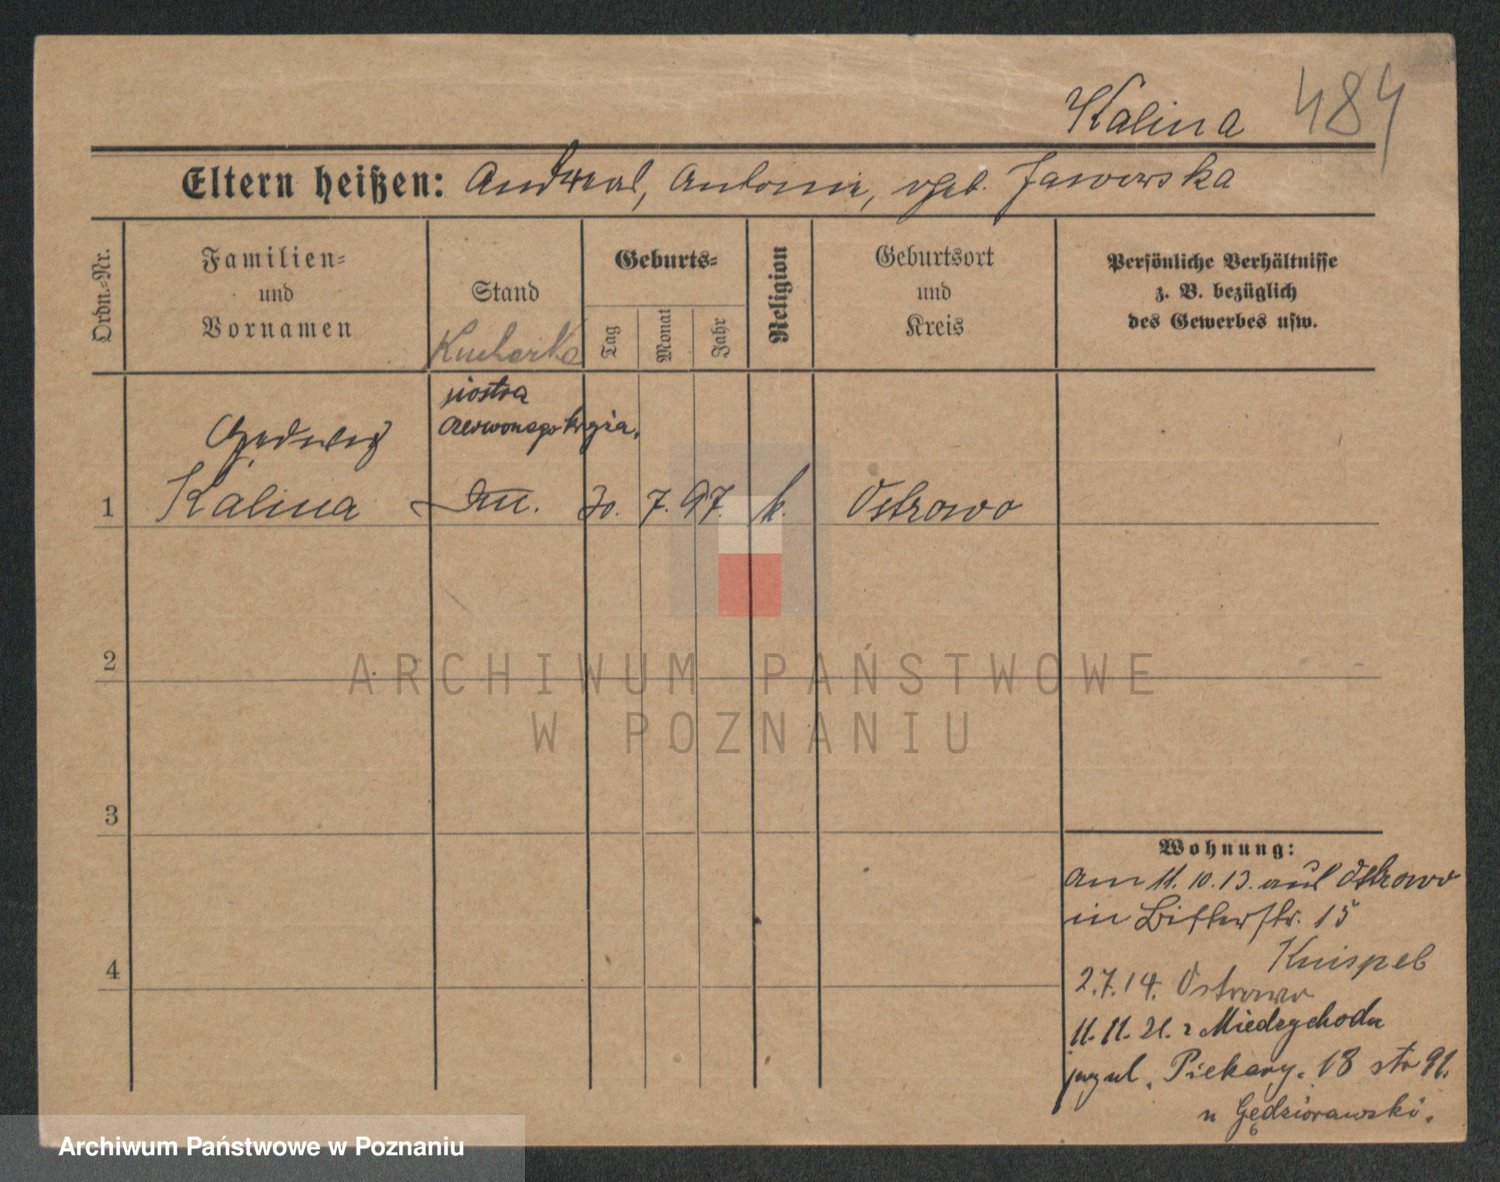 Kalina 484
Eltern heißen: Andreas, Antonie, geb. Jaworska
Ordn.-Nr.
Familien-
und
Vornamen
Stand
Kucharka
Geburts-
Tag
Monat
Jahr
Religion
Geburtsort
und
Kreis
Persönliche Verhältnisse
z. B. bezüglich
des Gewerbes usw.
siostra
czerwonego krzyża.
Hedwig
1 Kalina 30. 7. 97. k. Ostrowo
2
3
4
Wohnung:
am 11.10.13. aus Ostrowo
in Bitterstr. 15
Knispel
2.7.14. Ostrowo
11.11.21. z Miedzychodu
przy ul. Piekary. 18 str 91.
u Gędziorawski.
ARCHIWUM PAŃSTWOWE
W POZNANIU
Archiwum Państwowe w Poznaniu